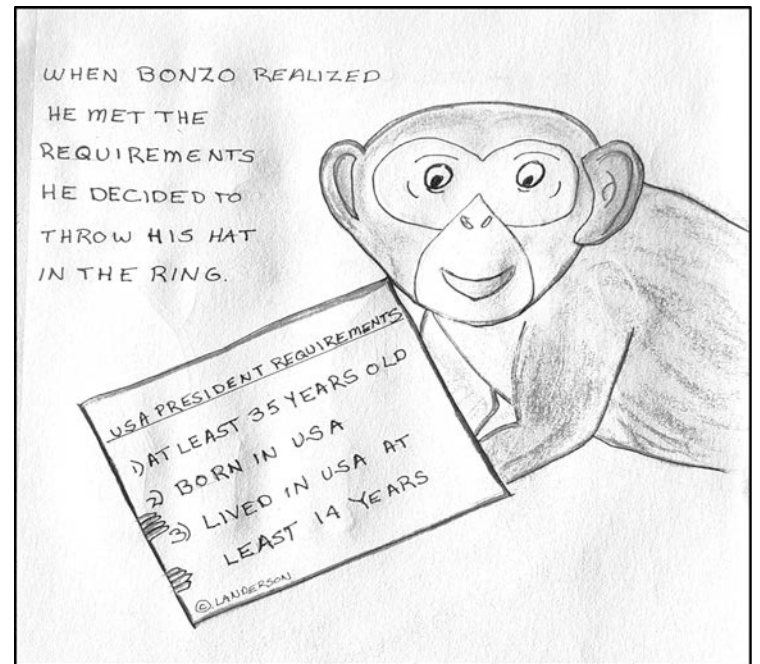 WHEN BONZO REALIZED
HE MET THE
REQUIREMENTS
HE DECIDED TO
THROW HIS HAT
IN THE RING.
USA PRESIDENT REQUIREMENTS
1) AT LEAST 35 YEARS OLD
2) BORN IN USA
3) LIVED IN USA AT
LEAST 14 YEARS
© LANDERSON